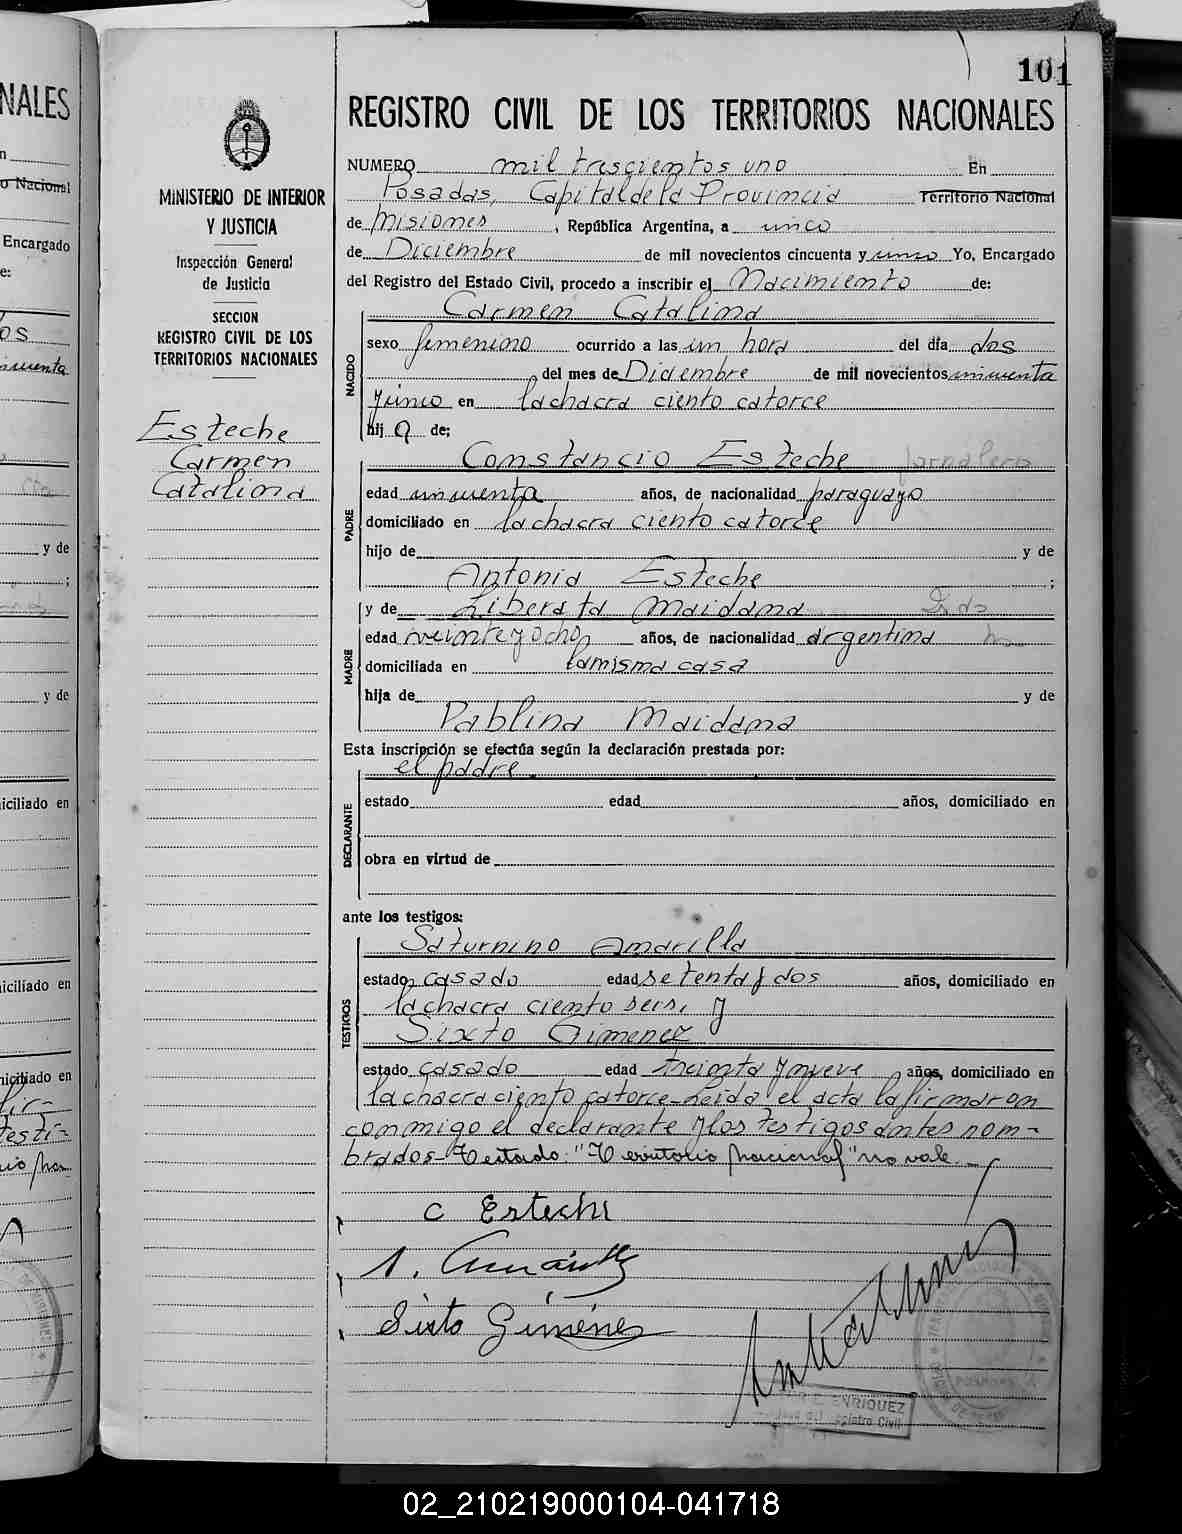 101
REGISTRO CIVIL DE LOS TERRITORIOS NACIONALES
MINISTERIO DE INTERIOR
Y JUSTICIA
Inspección General
de Justicia
SECCION
REGISTRO CIVIL DE LOS
TERRITORIOS NACIONALES
Esteche
Carmen
Catalina
NUMERO mil trescientos uno En
Posadas, Capital de la Provincia Territorio Nacional
de Misiones, República Argentina, a unico
de Diciembre de mil novecientos cincuenta y uno Yo, Encargado
del Registro del Estado Civil, procedo a inscribir el Nacimiento de:
NACIDO
Carmen Catalina
sexo femenino ocurrido a las un hora del día dos
del mes de Diciembre de mil novecientos cincuenta
y uno en la chacra ciento catorce
hij a de:
PADRE
Constancio Esteche jornalero
edad cincuenta años, de nacionalidad paraguaya
domiciliado en la chacra ciento catorce
hijo de y de
Antonia Esteche ;
y de Liberata Maidana
MADRE
edad veinte y ocho años, de nacionalidad argentina
domiciliada en la misma casa
hija de y de
Pablina Maidana
Esta inscripción se efectúa según la declaración prestada por:
el padre
DECLARANTE
estado edad años, domiciliado en
obra en virtud de
ante los testigos:
TESTIGOS
Saturnino Amarilla
estado casado edad setenta y dos años, domiciliado en
la chacra ciento seis, y
Sixto Gimenez
estado casado edad treinta y nueve años, domiciliado en
la chacra ciento catorce. Leida el acta la firmaron
conmigo el declarante y los testigos antes nom-
brados- Testado: "Territorio Nacional" no vale.
C Esteche
S. Amarilla
Sixto Giménez
ENRIQUEZ
del Registro Civil
NALES
o Nacional
Encargado
e:
y de
;
y de
iciliado en
iciliado en
niciliado en
02_210219000104-041718